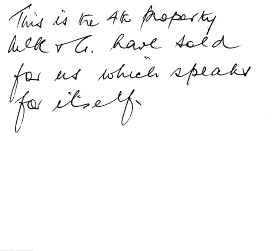 This is the 4th property
A & G. have sold
for us which speaks
for itself.